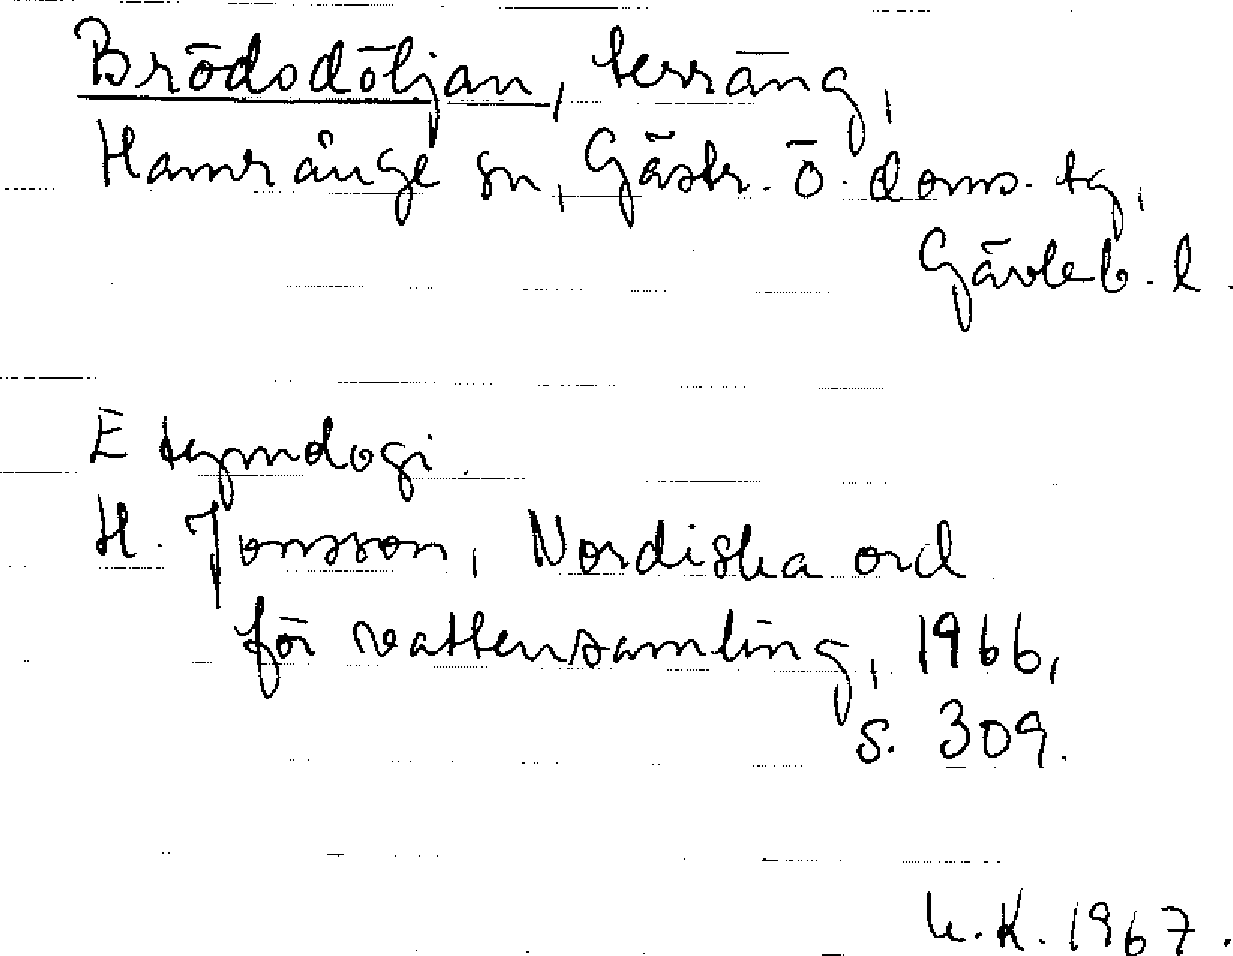 Brödsdöljan, terräng,
Hamrånge sn, Gästr. Ö. doms. tg,
Gävleb. l.
Etymologi.
H. Jonsson, Nordiska ord
för vattensamling, 1966,
s. 309.
K. 1967.